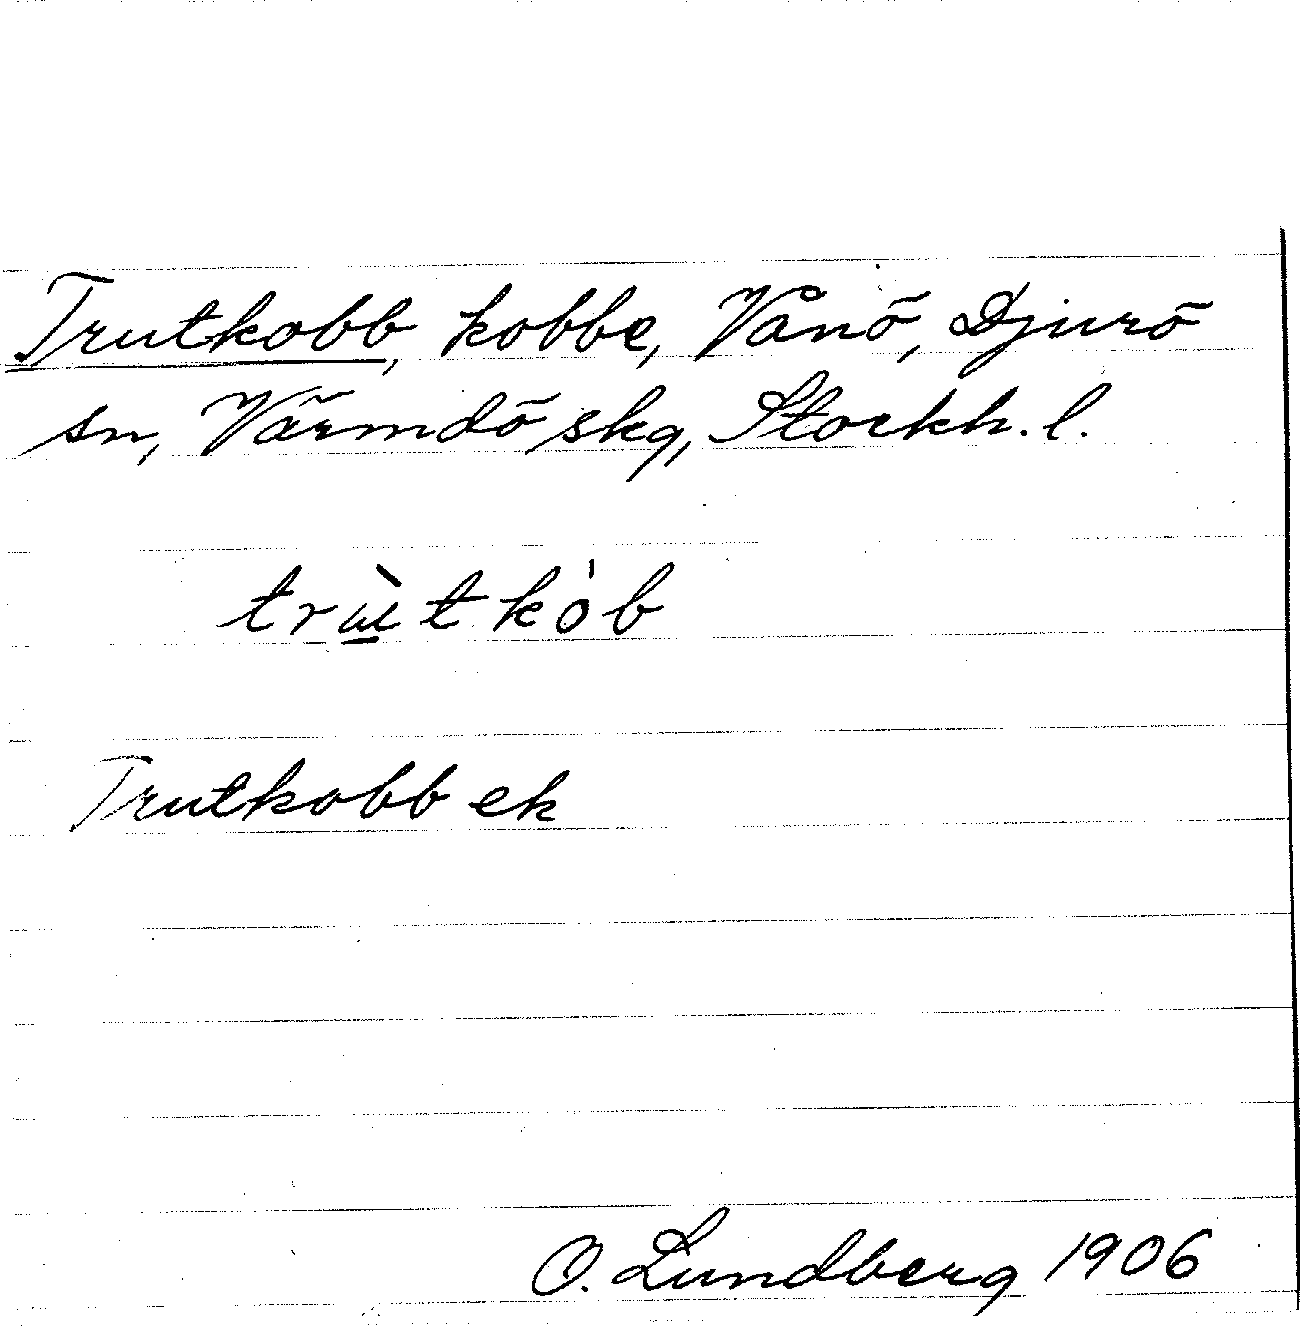 Trutkobb, kobbe, Vånö, Djurö
sn, Värmdö skg, Stockh. l.
trɯ̀tkob̍
Trutkobb ek
O. Lundberg 1906